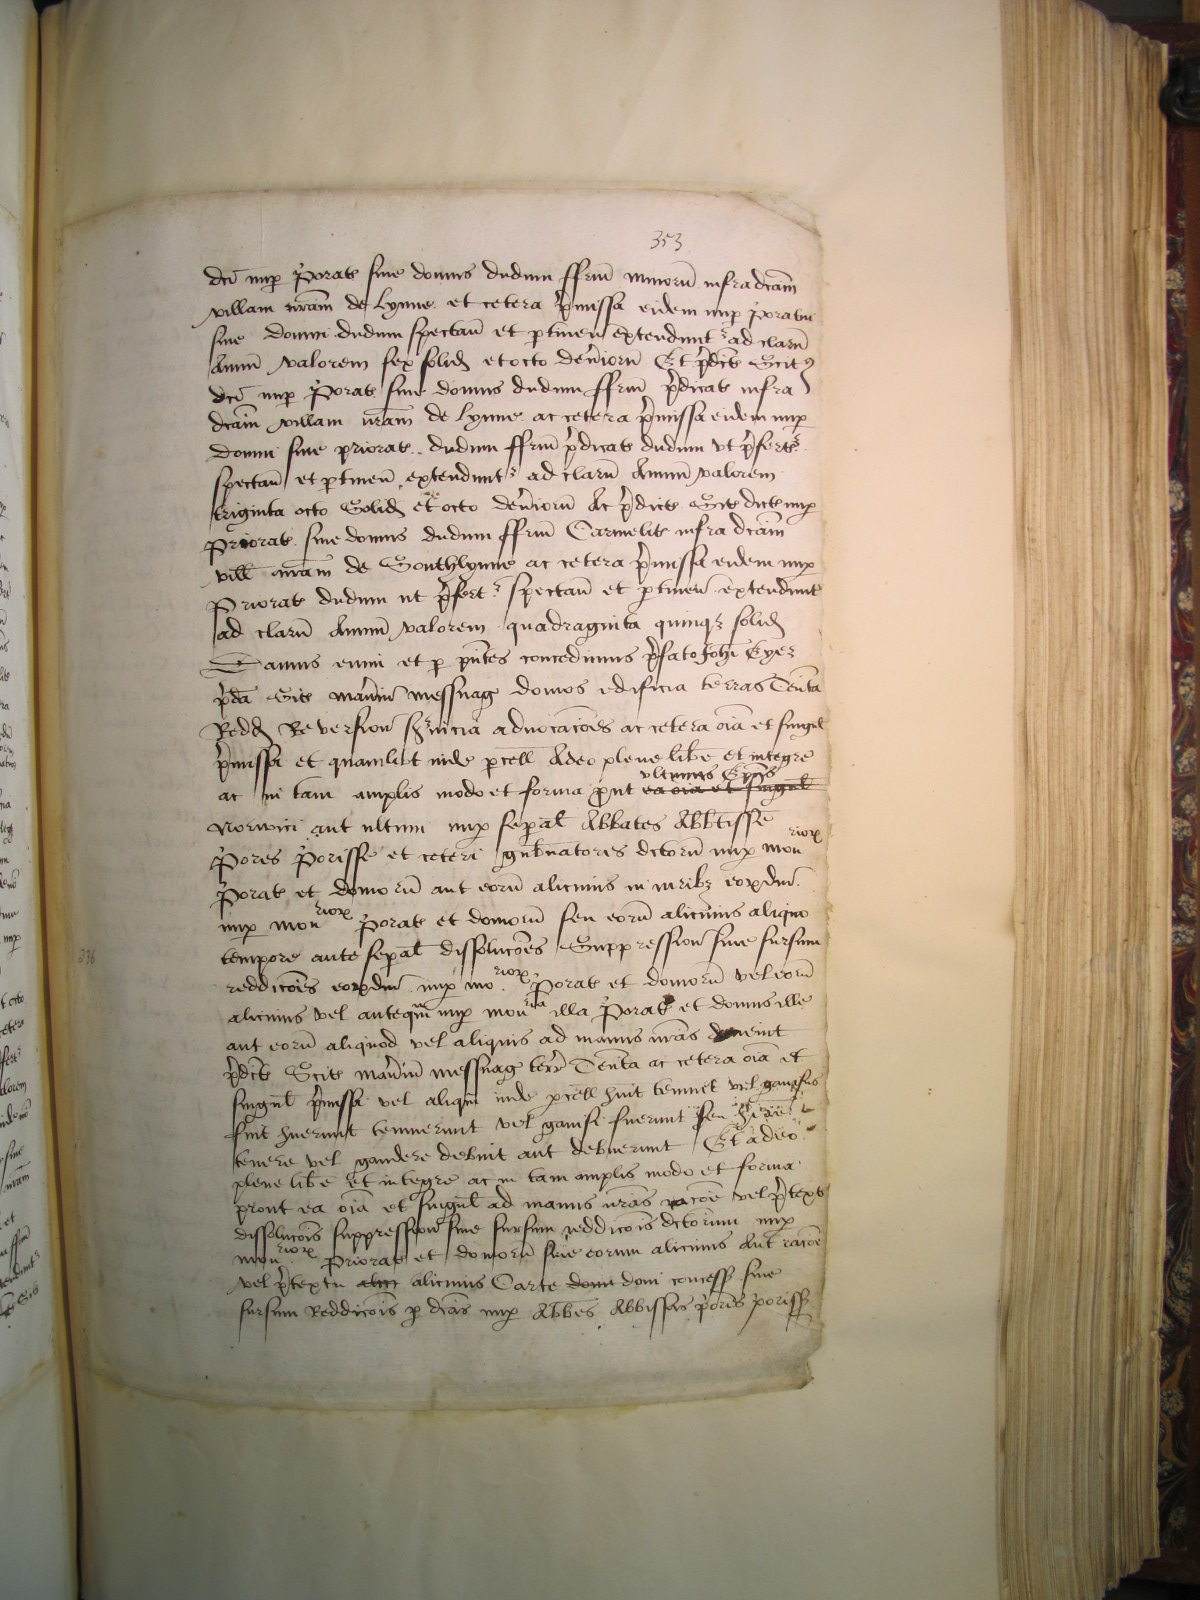 353
dcī nup Porat sive domus dudum ffrm minorū infra dcam
villam nrām de Lynne et cetera pmissa eidem nup poratui
sive domui dudum spectan et ptinen extendunt ad clarū
Annū valorem sex solid et octo denariorū Et pdict Scit
dcī nup Porat sive domus dudum ffrm pdicat infra
dcam villam nrām de Lynne ac cetera pmissa eidem nup
domui sive priorat dudum ffrm pdicat dudum ut pfert
spectan et ptinen extendunt ad clarū Annū valorem
triginta octo Solid et octo denariorū Ac pdict Scit dict nup
Priorat sive domus dudum ffrm Carmelit infra dcam
vill nrām de Southlynne ac cetera pmissa eidem nup
Priorat dudum ut pfert spectan et ptinen extendunt
ad clarū Annū valorem quadraginta quinq solid
Damus enim et p pntes concedimus pfato Johi Eyer
pdca Scit maner messuag domos edificia terras Tenta
Redd Reversion Servicia advocacoes ac cetera oia et singul
pmissa et quamlibt inde pcell Adeo plene libe et integre
ac in tam amplis modo et forma put ea oia et singul
ultimus Epus
Norwici aut ultimi nup sepal Abbates Abbtisse
Pores Porisse et ceteri gubnatores dctorū nup mon riox
Porat et domorū aut eorū alicuius in iuribz eoxdm
nup mon riox Porat et domorū seu eorū alicuius aliquo
tempore ante sepal dissolucoes Suppression sive sursum
reddicoes eoxdm nup mo riox Porat et domorū vel eorū
alicuius vel anteqm nup mon ria illa Porat et domus ille
aut eorū aliquod vel aliquis ad manus nras deveint
pdict Scit maner messuag terr Tenta ac cetera oia et
singul pmissa vel aliqm inde pcell huit tenuit vel gavisus
fuit huerunt tenuerunt vel gavisi fuerunt seu here
tenere vel gaudere debuit aut debuerunt Et adeo
plene libe et integre ac in tam amplis modo et forma
prout ea oia et singul ad manus nras racoe vel ptextu
dissolucois suppression sive sursum reddicois dctorum nup
mon riox Priorat et domorū sive eorum alicuius Aut racoe
vel ptextu alicuius Carte doni concess sive
sursum Reddicois p dcas nup Abbes Abbissas pores poriss